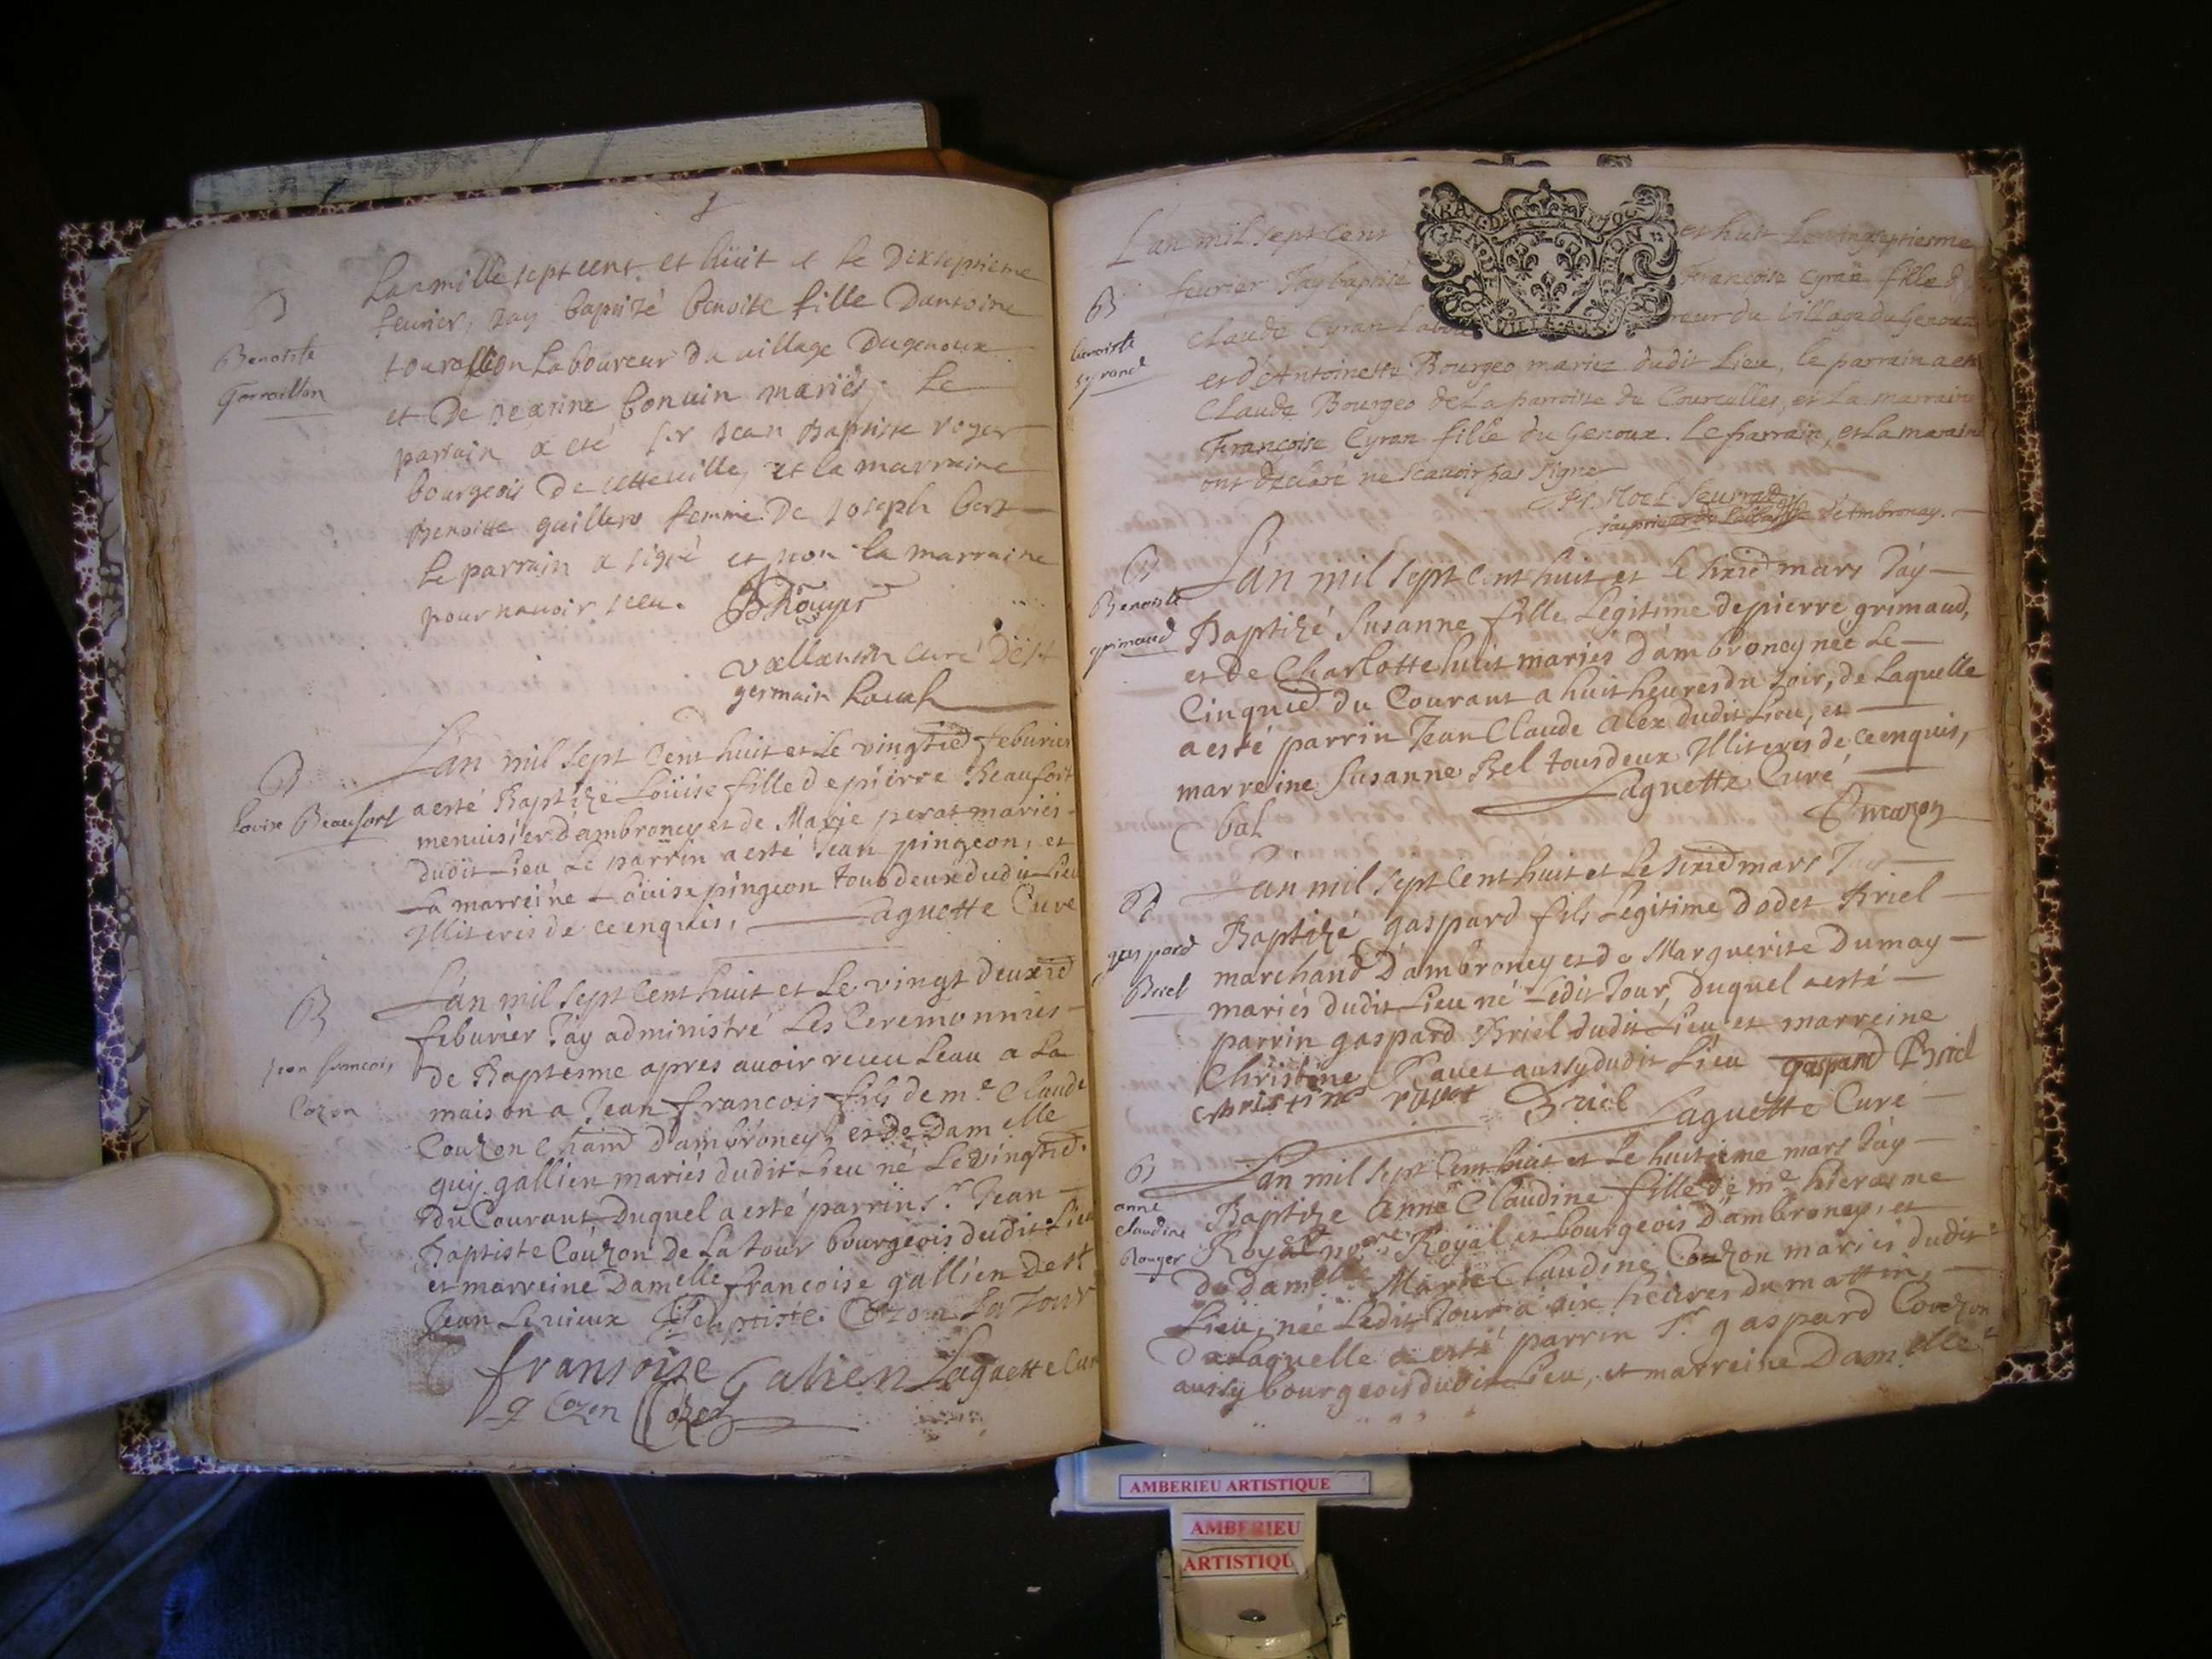 B
Benoiste
Gorraillon
Lan mille sept cent et huit et le Dixseptieme
feurier, Jay baptizé benoite fille Dantoine
tourallion Laboureur du uillage Dugenoux
et De Jeanne bonuin mariés. Le
parrain a eté sr Jean Baptiste royer
bourgeois De cette uille, et la marraine
Benoitte guillero femme De Joseph bert
le parrain a signé et non la marraine
pour nauoir sceu. Rouyer
uallansin curé De st
germain
B
Louise Beaufort
Lan mil sept Cent huit et Le vingtie feburier
a esté Baptizée Loüise fille de pierre Beaufort
menuisier dambroney et de Marie perat mariés
dudit Lieu Le parrin a esté Jean pingeon, et
La marreine Loüise pingeon tous deux dudit Lieu
Illiterés de ce enquis, Laguette Curé
B
Jean francois
Cozon
Lan mil sept Cent huit et Le vingt deuxie
feburier Jay administré Les Ceremonnies
de Baptesme apres auoir receu Leau a La
maison a Jean francois fils de me Claude
Couzon Cham dambroney, et de Damelle
guy gallien mariés dudit Lieu né Le vingtie
du Courant Duquel a esté parrin Sr Jean
Baptiste Couzon de La tour bourgeois dudit Lieu
et marreine Damelle francoise gallien De st
Jean Le uieux J Baptiste Cozon La Tour
fransoise Galien Laguette Cur
g Cozon Cozon
Lan mil sept Cent et huit Le vingseptiesme
feurier Jay baptisé Francoise Cyran fille d
B
benoiste
syrand
Claude Cyran Labou reur du village du Genoux
et d'Antoinette Bourgeo mariez dudit Lieu, le parrain a eté
Claude Bourgeo de La parroisse de Courcelles, et La marraine
Francoise Cyran fille du Genoux. Le parrain, et La maraine
ont declaré ne scauoir pas signer
fr. Noel Seurrad
d'Ambronay.
B
Benoiste
grimaud
Lan mil sept Cent huit et Le sixie mars Jay
Baptizé Susanne fille Legitime de pierre grimaud,
et de Charlotte huit mariés dambroney née Le
Cinquie du Courant a huit heures du soir, de Laquelle
a esté parrin Jean Claude alex dudit Lieu, et
marreine Susanne Bel tous deux Illiterés de ce enquis,
Laguette Curé
B
gaspard
Briel
Lan mil sept Cent huit et Le sixie mars Jay
Baptizé gaspard fils Legitime dodet Briel
marchand Dambroney et de Marguerite Dumay
mariés dudit Lieu né Ledit Jour, duquel a esté
parrin gaspard Briel dudit Lieu et marreine
Christine Rauet aussy dudit Lieu gaspard Briel
Christine rauet Briel Laguette Curé
B
anne
claudine
Rouyer
Lan mil sept Cent huit et Le huitieme mars Jay
Baptizé anne Claudine fille de me hierosme
Royer nore Royal et bourgeois Dambroney, et
de damelle Marie Claudine Couzon mariés dudit
Lieu, née Ledit Jour a six heures du mattin,
de Laquelle a esté parrin Sr gaspard Couzon
aussy bourgeois dudit Lieu, et marreine Damelle
AMBERIEU ARTISTIQUE
AMBERIEU
ARTISTIQU